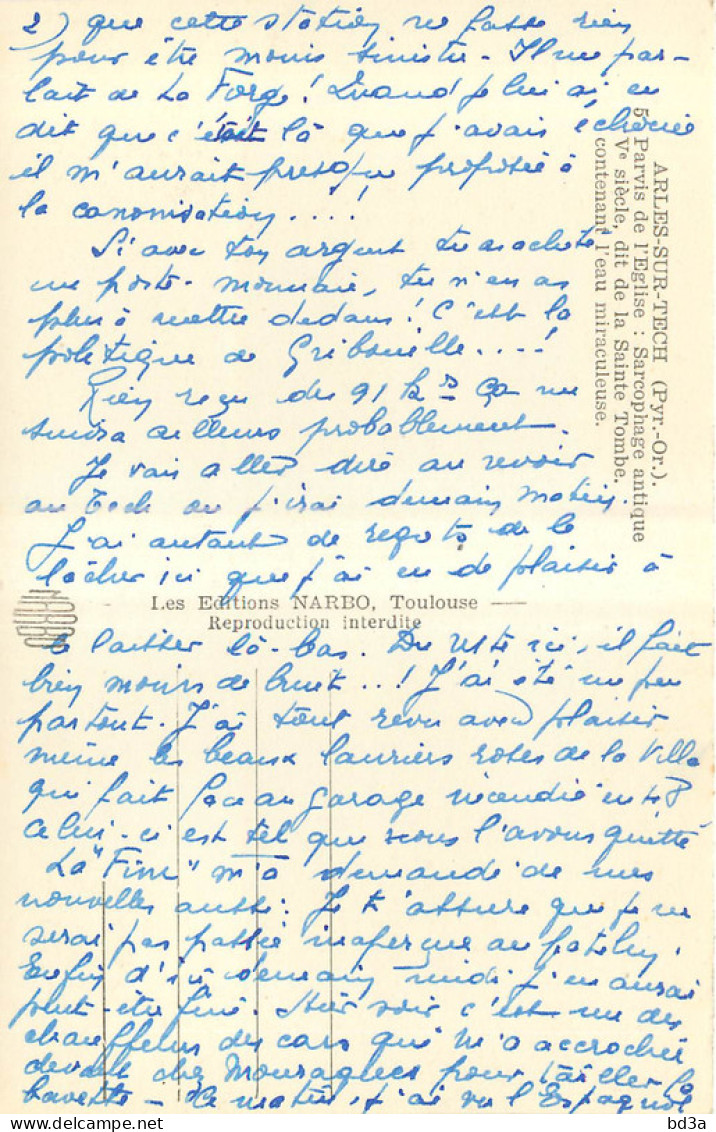 2) que cette station ne fasse rien
pour être moins sinistre. Il me par-
lait de La Forge! Quand je lui ai eu
dit que c'était là que j'avais échouée
il m'aurait presque proposée à
la canonisation....!
Si avec ton argent tu as acheté
un porte-monnaie, tu n'en as
plus à mettre dedans! C'est la
politique de Gribouille....!
Rien reçu des 91 Ça me
suivra ailleurs probablement.
Je vais aller dire au revoir
au Tech où j'irai demain matin.
J'ai autant de regrets de le
lâcher ici que j'ai eu de plaisir à
le laisser là-bas. Du reste ici, il fait
bien moins de bruit...! J'ai été un peu
partout. J'ai tout revu avec plaisir
même les beaux lauriers roses de la villa
qui fait face au garage incendié
Celui-ci est tel que nous l'avons quitté
La "Fine" m'a demandé de mes
nouvelles aussi. Je t'assure que je ne
serai pas passée inaperçue au patelin.
Enfin d'ici demain midi j'en aurai
peut-être fini. Hier soir c'est un des
chauffeurs des cars qui m'a accrochée
devant chez Mouragues pour tailler la
bavette - Ce matin, j'ai vu l'Espagnol
ARLES-SUR-TECH (Pyr.-Or.).
5 Parvis de l'Eglise : Sarcophage antique
Ve siècle, dit de la Sainte Tombe.
contenant l'eau miraculeuse.
NARBO
Les Editions NARBO, Toulouse
Reproduction interdite
bd3a